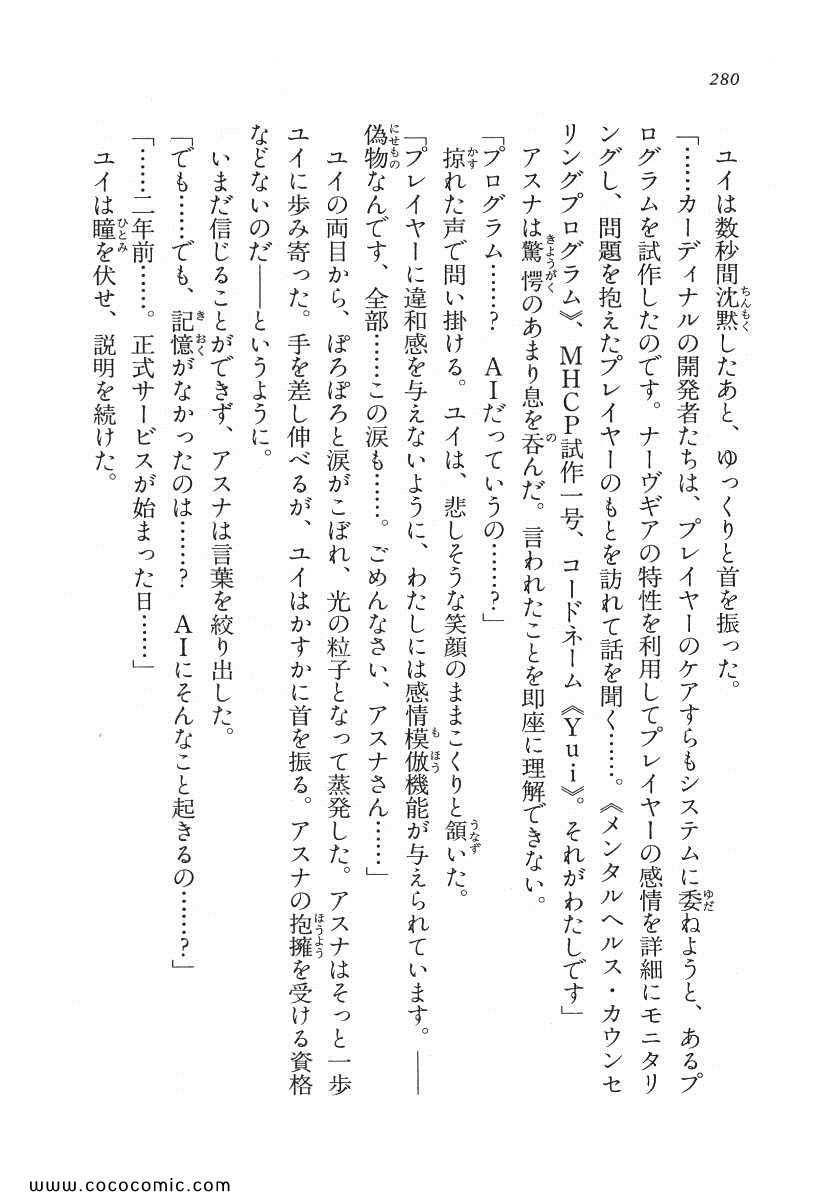 280
　ユイは数秒間沈黙したあと、ゆっくりと首を振った。
「……カーディナルの開発者たちは、プレイヤーのケアすらもシステムに委ねようと、あるプ
ログラムを試作したのです。ナーヴギアの特性を利用してプレイヤーの感情を詳細にモニタリ
ングし、問題を抱えたプレイヤーのもとを訪れて話を聞く……。《メンタルヘルス・カウンセ
リングプログラム》、ＭＨＣＰ試作一号、コードネーム《Ｙｕｉ》。それがわたしです」
　アスナは驚愕のあまり息を呑んだ。言われたことを即座に理解できない。
「プログラム……？　ＡＩだっていうの……？」
　掠れた声で問い掛ける。ユイは、悲しそうな笑顔のままこくりと頷いた。
「プレイヤーに違和感を与えないように、わたしには感情模倣機能が与えられています。――
偽物なんです、全部……この涙も……。ごめんなさい、アスナさん……」
　ユイの両目から、ぽろぽろと涙がこぼれ、光の粒子となって蒸発した。アスナはそっと一歩
ユイに歩み寄った。手を差し伸べるが、ユイはかすかに首を振る。アスナの抱擁を受ける資格
などないのだ――というように。
　いまだ信じることができず、アスナは言葉を絞り出した。
「でも……でも、記憶がなかったのは……？　ＡＩにそんなこと起きるの……？」
「……二年前……。正式サービスが始まった日……」
　ユイは瞳を伏せ、説明を続けた。
www.cococomic.com